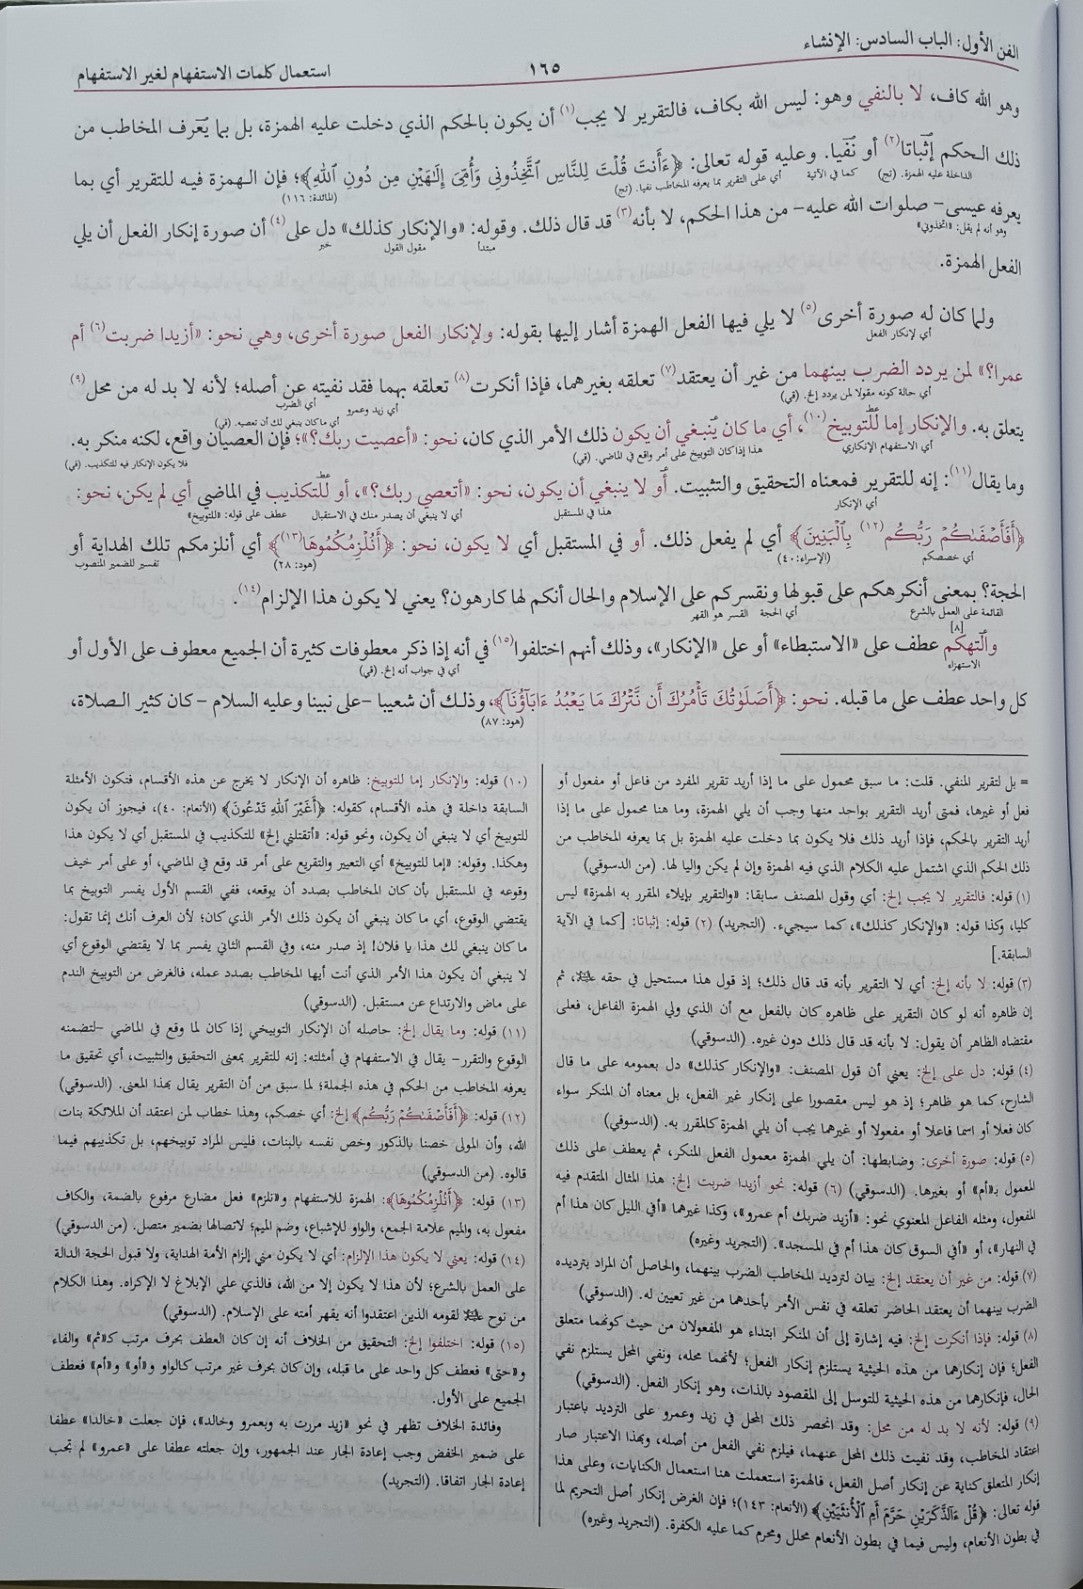 الفن الأول: الباب السادس: الإنشاء
١٦٥
استعمال كلمات الاستفهام لغير الاستفهام
وهو الله كاف، لا بالنفي وهو: ليس الله بكاف، فالتقرير لا يجب(١) أن يكون بالحكم الذي دخلت عليه الهمزة، بل بما يعرف المخاطب من
ذلك الحكم إثباتا(٢) أو نفيا. وعليه قوله تعالى: ﴿ءَأَنتَ قُلْتَ لِلنَّاسِ ٱتَّخِذُونِى وَأُمِّىَ إِلَـٰهَيْنِ مِن دُونِ ٱللَّهِ﴾؛ فإن الهمزة فيه للتقرير أي بما
الداخلة عليه الهمزة. (تج) كما في الآتية أي على التقرير بما يعرفه المخاطب نفيا. (تج) (المائدة: ١١٦)
يعرفه عيسى- صلوات الله عليه- من هذا الحكم، لا بأنه(٣) قد قال ذلك. وقوله: «والإنكار كذلك» دل على(٤) أن صورة إنكار الفعل أن يلي
وهو أنه لم يقل: «اتخذوني» مبتدأ مقول القول خبر
الفعل الهمزة.
ولما كان له صورة أخرى(٥) لا يلي فيها الفعل الهمزة أشار إليها بقوله: ولإنكار الفعل صورة أخرى، وهي نحو: «أزيدا ضربت(٦) أم
أي لإنكار الفعل
عمرا؟» لمن يردد الضرب بينهما من غير أن يعتقد(٧) تعلقه بغيرهما، فإذا أنكرت(٨) تعلقه بهما فقد نفيته عن أصله؛ لأنه لا بد له من محل(٩)
أي حالة كونه مقولا لمن يردد إلخ. (في) أي زيد وعمرو أي الضرب
يتعلق به. والإنكار إما للتوبيخ(١٠)، أي ما كان ينبغي أن يكون ذلك الأمر الذي كان، نحو: «أعصيت ربك؟»؛ فإن العصيان واقع، لكنه منكر به.
أي الاستفهام الإنكاري هذا إذا كان التوبيخ على أمر واقع في الماضي. (في) أي ما كان ينبغي لك أن تعصيه. (في) فلا يكون الإنكار فيه للتكذيب. (في)
وما يقال(١١): إنه للتقرير فمعناه التحقيق والتثبيت. أو لا ينبغي أن يكون، نحو: «أتعصي ربك؟»، أو للتكذيب في الماضي أي لم يكن، نحو:
أي الإنكار هذا في المستقبل أي لا ينبغي أن يصدر منك في الاستقبال عطف على قوله: «للتوبيخ»
﴿أَفَأَصْفَىٰكُمْ رَبُّكُم(١٢) بِٱلْبَنِينَ﴾ أي لم يفعل ذلك. أو في المستقبل أي لا يكون، نحو: ﴿أَنُلْزِمُكُمُوهَا(١٣)﴾ أي أنلزمكم تلك الهداية أو
أي خصصكم (الإسراء: ٤٠) (هود: ٢٨) تفسير للضمير المنصوب
الحجة؟ بمعنى أنكرهكم على قبولها ونقسركم على الإسلام والحال أنكم لها كارهون؟ يعني لا يكون هذا الإلزام(١٤).
القائمة على العمل بالشرع أي الحجة القسر هو القهر
[٨]
والتهكم عطف على «الاستبطاء» أو على «الإنكار»، وذلك أنهم اختلفوا(١٥) في أنه إذا ذكر معطوفات كثيرة أن الجميع معطوف على الأول أو
الاستهزاء أي في جواب أنه إلخ. (في)
كل واحد عطف على ما قبله. نحو: ﴿أَصَلَوٰتُكَ تَأْمُرُكَ أَن نَّتْرُكَ مَا يَعْبُدُ ءَابَآؤُنَآ﴾، وذلك أن شعيبا -على نبينا وعليه السلام - كان كثير الصلاة،
(هود: ٨٧)
= بل لتقرير المنفي. قلت: ما سبق محمول على ما إذا أريد تقرير المفرد من فاعل أو مفعول أو
فعل أو غيرها، فمتى أريد التقرير بواحد منها وجب أن يلي الهمزة، وما هنا محمول على ما إذا
أريد التقرير بالحكم، فإذا أريد ذلك فلا يكون بما دخلت عليه الهمزة بل بما يعرفه المخاطب من
ذلك الحكم الذي اشتمل عليه الكلام الذي فيه الهمزة وإن لم يكن واليا لها. (من الدسوقي)
(١) قوله: فالتقرير لا يجب إلخ: أي وقول المصنف سابقا: «والتقرير بإيلاء المقرر به الهمزة» ليس
كليا، وكذا قوله: «والإنكار كذلك»، كما سيجيء. (التجريد) (٢) قوله: إثباتا: [كما في الآية
السابقة.]
(٣) قوله: لا بأنه إلخ: أي لا التقرير بأنه قد قال ذلك؛ إذ قول هذا مستحيل في حقه ﷺ، ثم
إن ظاهره أنه لو كان التقرير على ظاهره كان بالفعل مع أن الذي ولي الهمزة الفاعل، فعلى
مقتضاه الظاهر أن يقول: لا بأنه قد قال ذلك دون غيره. (الدسوقي)
(٤) قوله: دل على إلخ: يعني أن قول المصنف: «والإنكار كذلك» دل بعمومه على ما قال
الشارح، كما هو ظاهر؛ إذ هو ليس مقصورا على إنكار غير الفعل، بل معناه أن المنكر سواء
كان فعلا أو اسما فاعلا أو مفعولا أو غيرهما يجب أن يلي الهمزة كالمقرر به. (الدسوقي)
(٥) قوله: صورة أخرى: وضابطها: أن يلي الهمزة معمول الفعل المنكر، ثم يعطف على ذلك
المعمول بـ«أم» أو بغيرها. (الدسوقي) (٦) قوله: نحو أزيدا ضربت إلخ: هذا المثال المتقدم فيه
المفعول، ومثله الفاعل المعنوي نحو: «أزيد ضربك أم عمرو»، وكذا غيرهما «أفي الليل كان هذا أم
في النهار»، أو «أفي السوق كان هذا أم في المسجد». (التجريد وغيره)
(٧) قوله: من غير أن يعتقد إلخ: بيان لترديد المخاطب الضرب بينهما، والحاصل أن المراد بترديده
الضرب بينهما أن يعتقد الحاضر تعلقه في نفس الأمر بأحدهما من غير تعيين له. (الدسوقي)
(٨) قوله: فإذا أنكرت إلخ: فيه إشارة إلى أن المنكر ابتداء هو المفعولان من حيث كونهما متعلق
الفعل؛ فإن إنكارهما من هذه الحيثية يستلزم إنكار الفعل؛ لأنهما محله، ونفي المحل يستلزم نفي
الحال، فإنكارهما من هذه الحيثية للتوسل إلى المقصود بالذات، وهو إنكار الفعل. (الدسوقي)
(٩) قوله: لأنه لا بد له من محل: وقد انحصر ذلك المحل في زيد وعمرو على الترديد باعتبار
اعتقاد المخاطب، وقد نفيت ذلك المحل عنهما، فيلزم نفي الفعل من أصله، وبهذا الاعتبار صار
إنكار المتعلق كناية عن إنكار أصل الفعل، فالهمزة استعملت هنا استعمال الكنايات، وعلى هذا
قوله تعالى: ﴿قُلْ ءَآلذَّكَرَيْنِ حَرَّمَ أَمِ ٱلْأُنثَيَيْنِ﴾ (الأنعام: ١٤٣)؛ فإن الغرض إنكار أصل التحريم لما
في بطون الأنعام، وليس فيما في بطون الأنعام محلل ومحرم كما عليه الكفرة. (التجريد وغيره)
(١٠) قوله: والإنكار إما للتوبيخ: ظاهره أن الإنكار لا يخرج عن هذه الأقسام، فتكون الأمثلة
السابقة داخلة في هذه الأقسام، كقوله: ﴿أَغَيْرَ ٱللَّهِ تَدْعُونَ﴾ (الأنعام: ٤٠)، فيجوز أن يكون
للتوبيخ أي لا ينبغي أن يكون، ونحو قوله: «أتقتلني إلخ» للتكذيب في المستقبل أي لا يكون هذا
وهكذا. وقوله: «إما للتوبيخ» أي التعيير والتقريع على أمر قد وقع في الماضي، أو على أمر خيف
وقوعه في المستقبل بأن كان المخاطب بصدد أن يوقعه، ففي القسم الأول يفسر التوبيخ بما
يقتضي الوقوع، أي ما كان ينبغي أن يكون ذلك الأمر الذي كان؛ لأن العرف أنك إنما تقول:
ما كان ينبغي لك هذا يا فلان! إذ صدر منه، وفي القسم الثاني يفسر بما لا يقتضي الوقوع أي
لا ينبغي أن يكون هذا الأمر الذي أنت أيها المخاطب بصدد عمله، فالغرض من التوبيخ الندم
على ماض والارتداع عن مستقبل. (الدسوقي)
(١١) قوله: وما يقال إلخ: حاصله أن الإنكار التوبيخي إذا كان لما وقع في الماضي -لتضمنه
الوقوع والتقرر- يقال في الاستفهام في أمثلته: إنه للتقرير بمعنى التحقيق والتثبيت، أي تحقيق ما
يعرفه المخاطب من الحكم في هذه الجملة؛ لما سبق من أن التقرير يقال بهذا المعنى. (الدسوقي)
(١٢) قوله: ﴿أَفَأَصْفَىٰكُمْ رَبُّكُم﴾ إلخ: أي خصكم، وهذا خطاب لمن اعتقد أن الملائكة بنات
الله، وأن المولى خصنا بالذكور وخص نفسه بالبنات، فليس المراد توبيخهم، بل تكذيبهم فيما
قالوه. (من الدسوقي)
(١٣) قوله: ﴿أَنُلْزِمُكُمُوهَا﴾: الهمزة للاستفهام و«نلزم» فعل مضارع مرفوع بالضمة، والكاف
مفعول به، والميم علامة الجمع، والواو للإشباع، وضم الميم؛ لاتصالها بضمير متصل. (من الدسوقي)
(١٤) قوله: يعني لا يكون هذا الإلزام: أي لا يكون مني إلزام الأمة الهداية، ولا قبول الحجة الدالة
على العمل بالشرع؛ لأن هذا لا يكون إلا من الله، فالذي علي الإبلاغ لا الإكراه. وهذا الكلام
من نوح ﷺ لقومه الذين اعتقدوا أنه يقهر أمته على الإسلام. (الدسوقي)
(١٥) قوله: اختلفوا إلخ: التحقيق من الخلاف أنه إن كان العطف بحرف مرتب كـ«ثم» والفاء
و«حتى» فعطف كل واحد على ما قبله، وإن كان بحرف غير مرتب كالواو و«أو» و«أم» فعطف
الجميع على الأول.
وفائدة الخلاف تظهر في نحو «زيد مررت به وبعمرو وخالد»، فإن جعلت «خالدا» عطفا
على ضمير الخفض وجب إعادة الجار عند الجمهور، وإن جعلته عطفا على «عمرو» لم تجب
إعادة الجار اتفاقا. (التجريد)